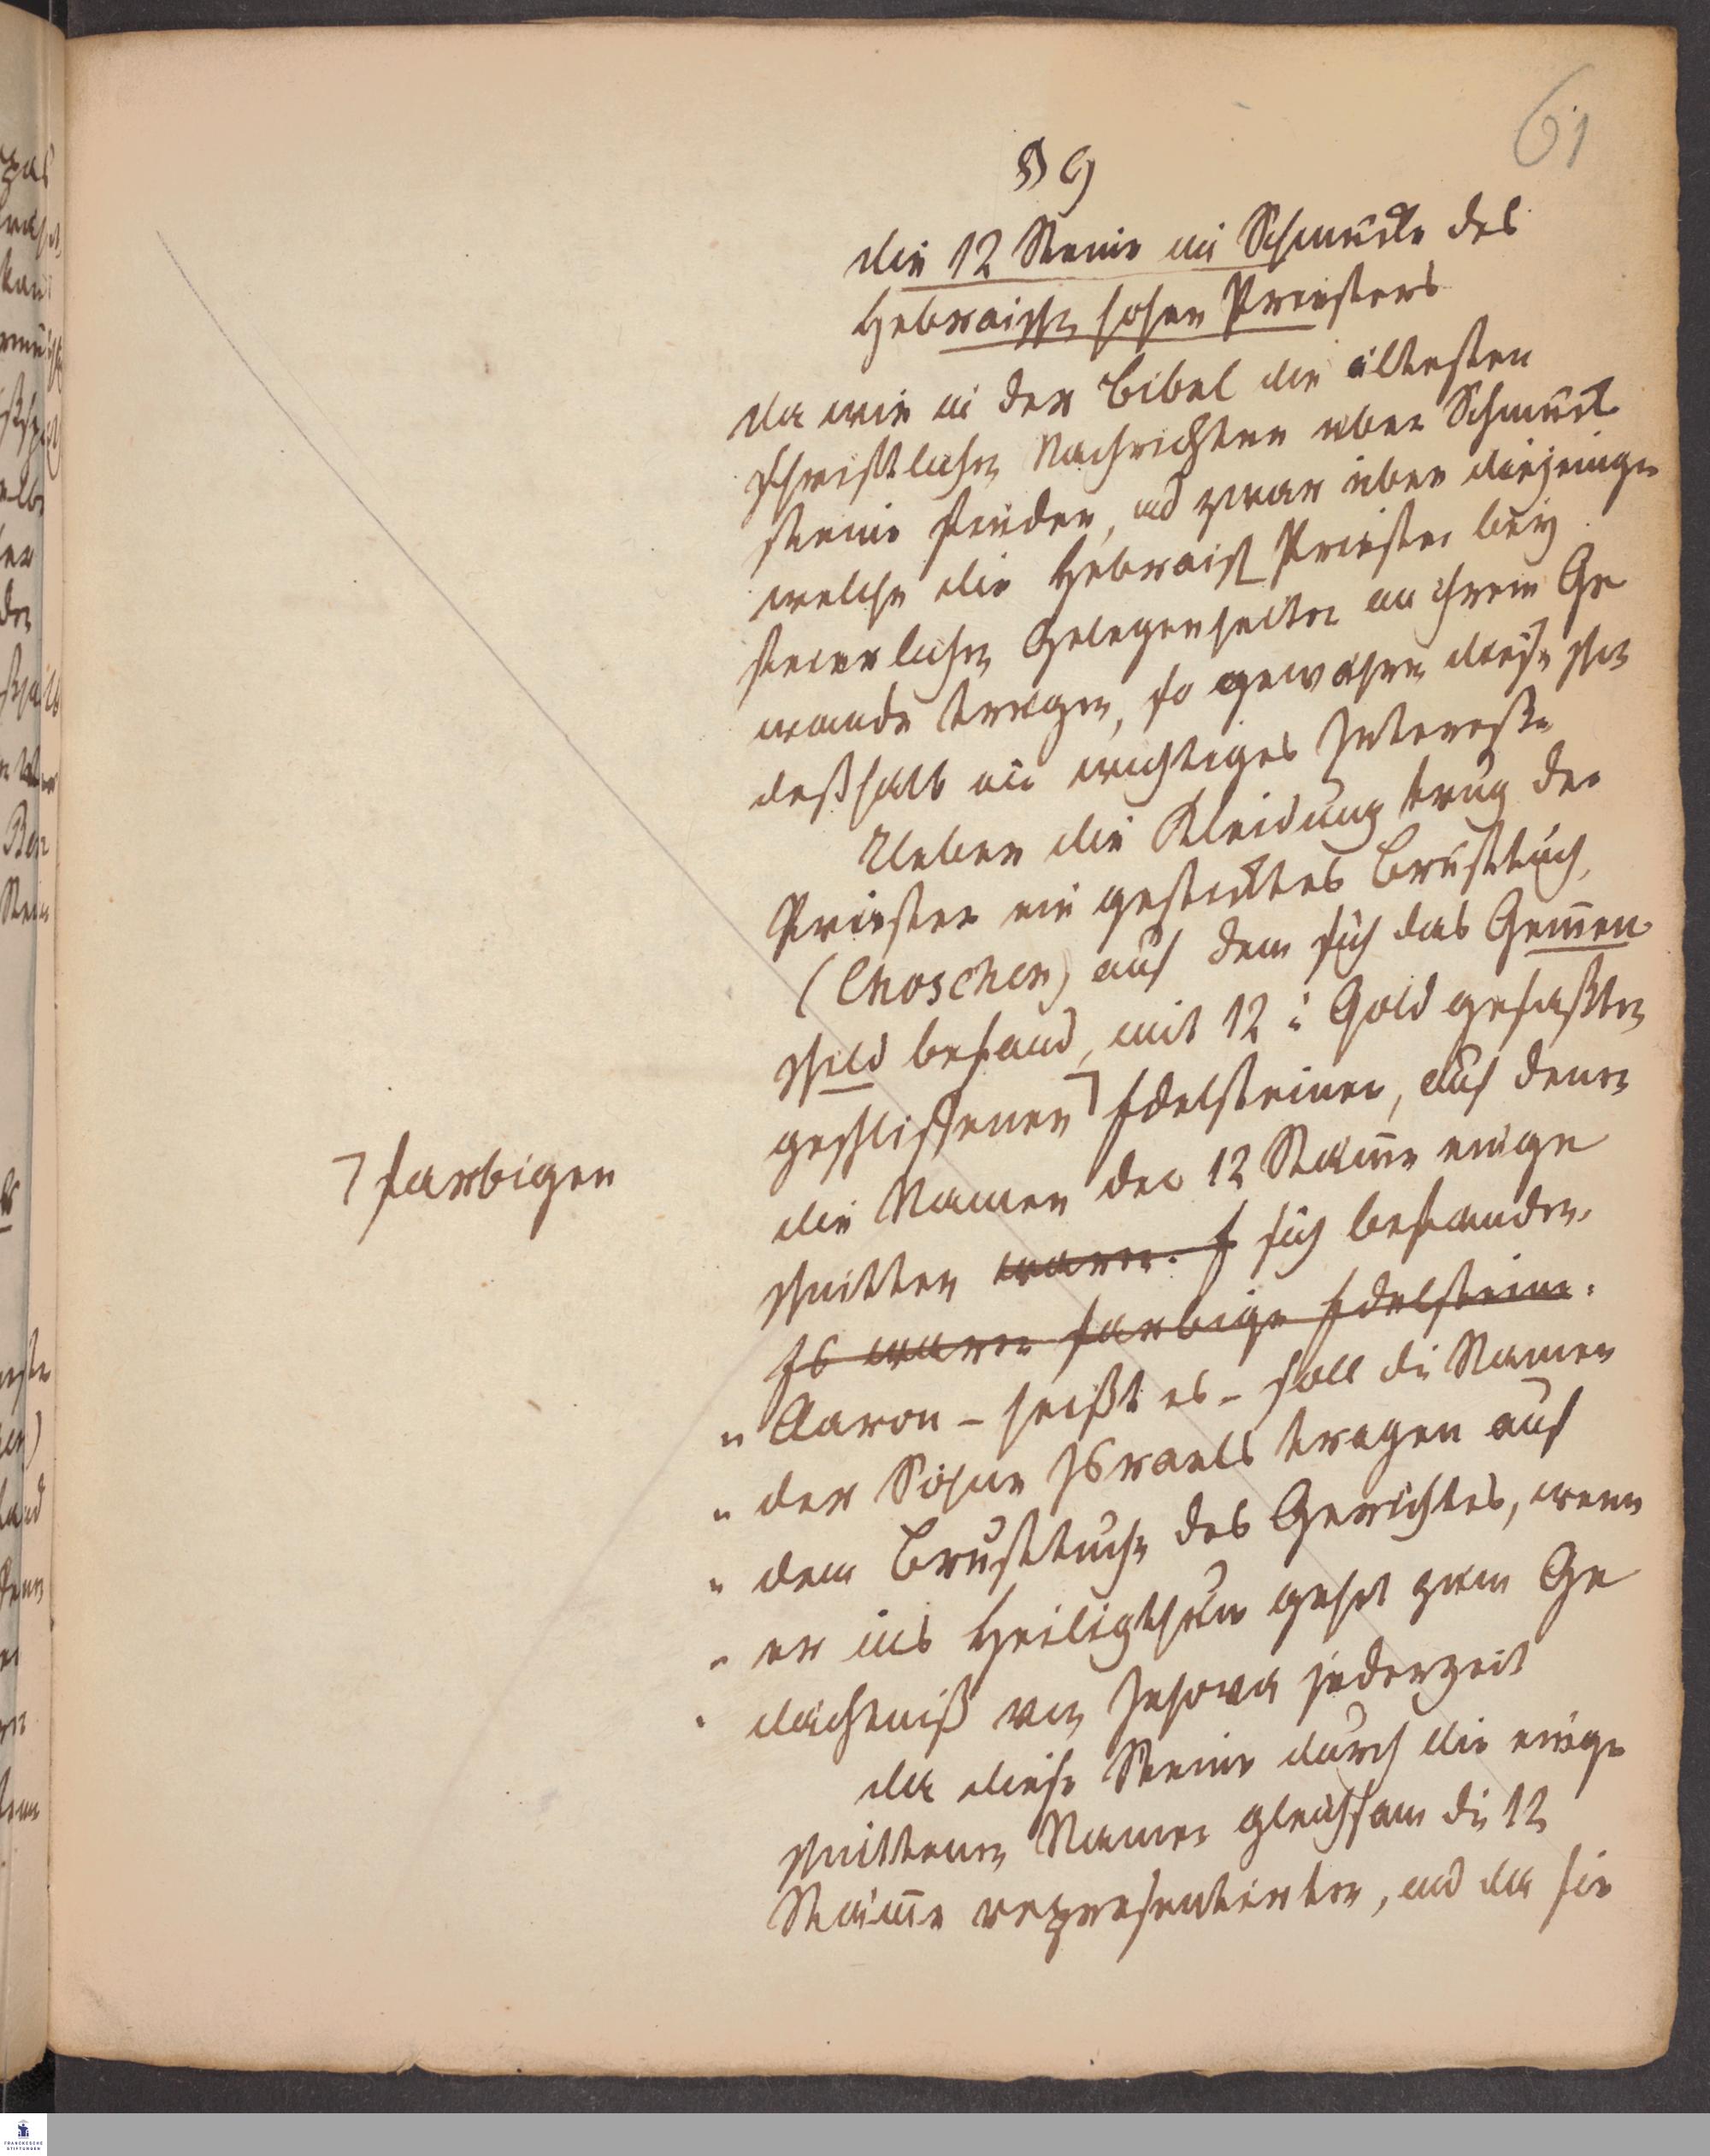 61
§ 9
Die 12 Steine im Schmucke des
Hebraisch hohen Priesters
Da wir in der Bibel die ältesten
schriftlichen Nachrichten über Schmuck
steine finden, und zwar über diejenigen
welche die Hebraisch Priester bey
feierlichen Gelegenheiten an ihrem Ge
wande trugen, so gewähren diese schon
deßhalb ein wichtiges Interesse
Ueber die Kleidung trug der
Priester ein gesticktes Brusttuch,
(Choschen) auf dem sich das Gemmen
schild befand, mit 12 in Gold gefaßten
geschliffenen ⁊ Edelsteinen, auf denen
⁊ farbigen
die Namen der 12 Stämme einge
schnitten waren. E sich befanden.
Es waren farbige Edelsteine.
„ Aaron – heißt es – soll die Namen
„ der Söhne Israels tragen auf
„ dem Brusttuche des Gerichtes, wenn
„ er ins Heiligthum gehet zum Ge
„ dächtniß von Jehova jederzeit
Da diese Steine durch die einge
schnittenen Namen gleichsam die 12
Stämme repräsentirten, und da sie
FRANCKESCHE
STIFTUNGEN